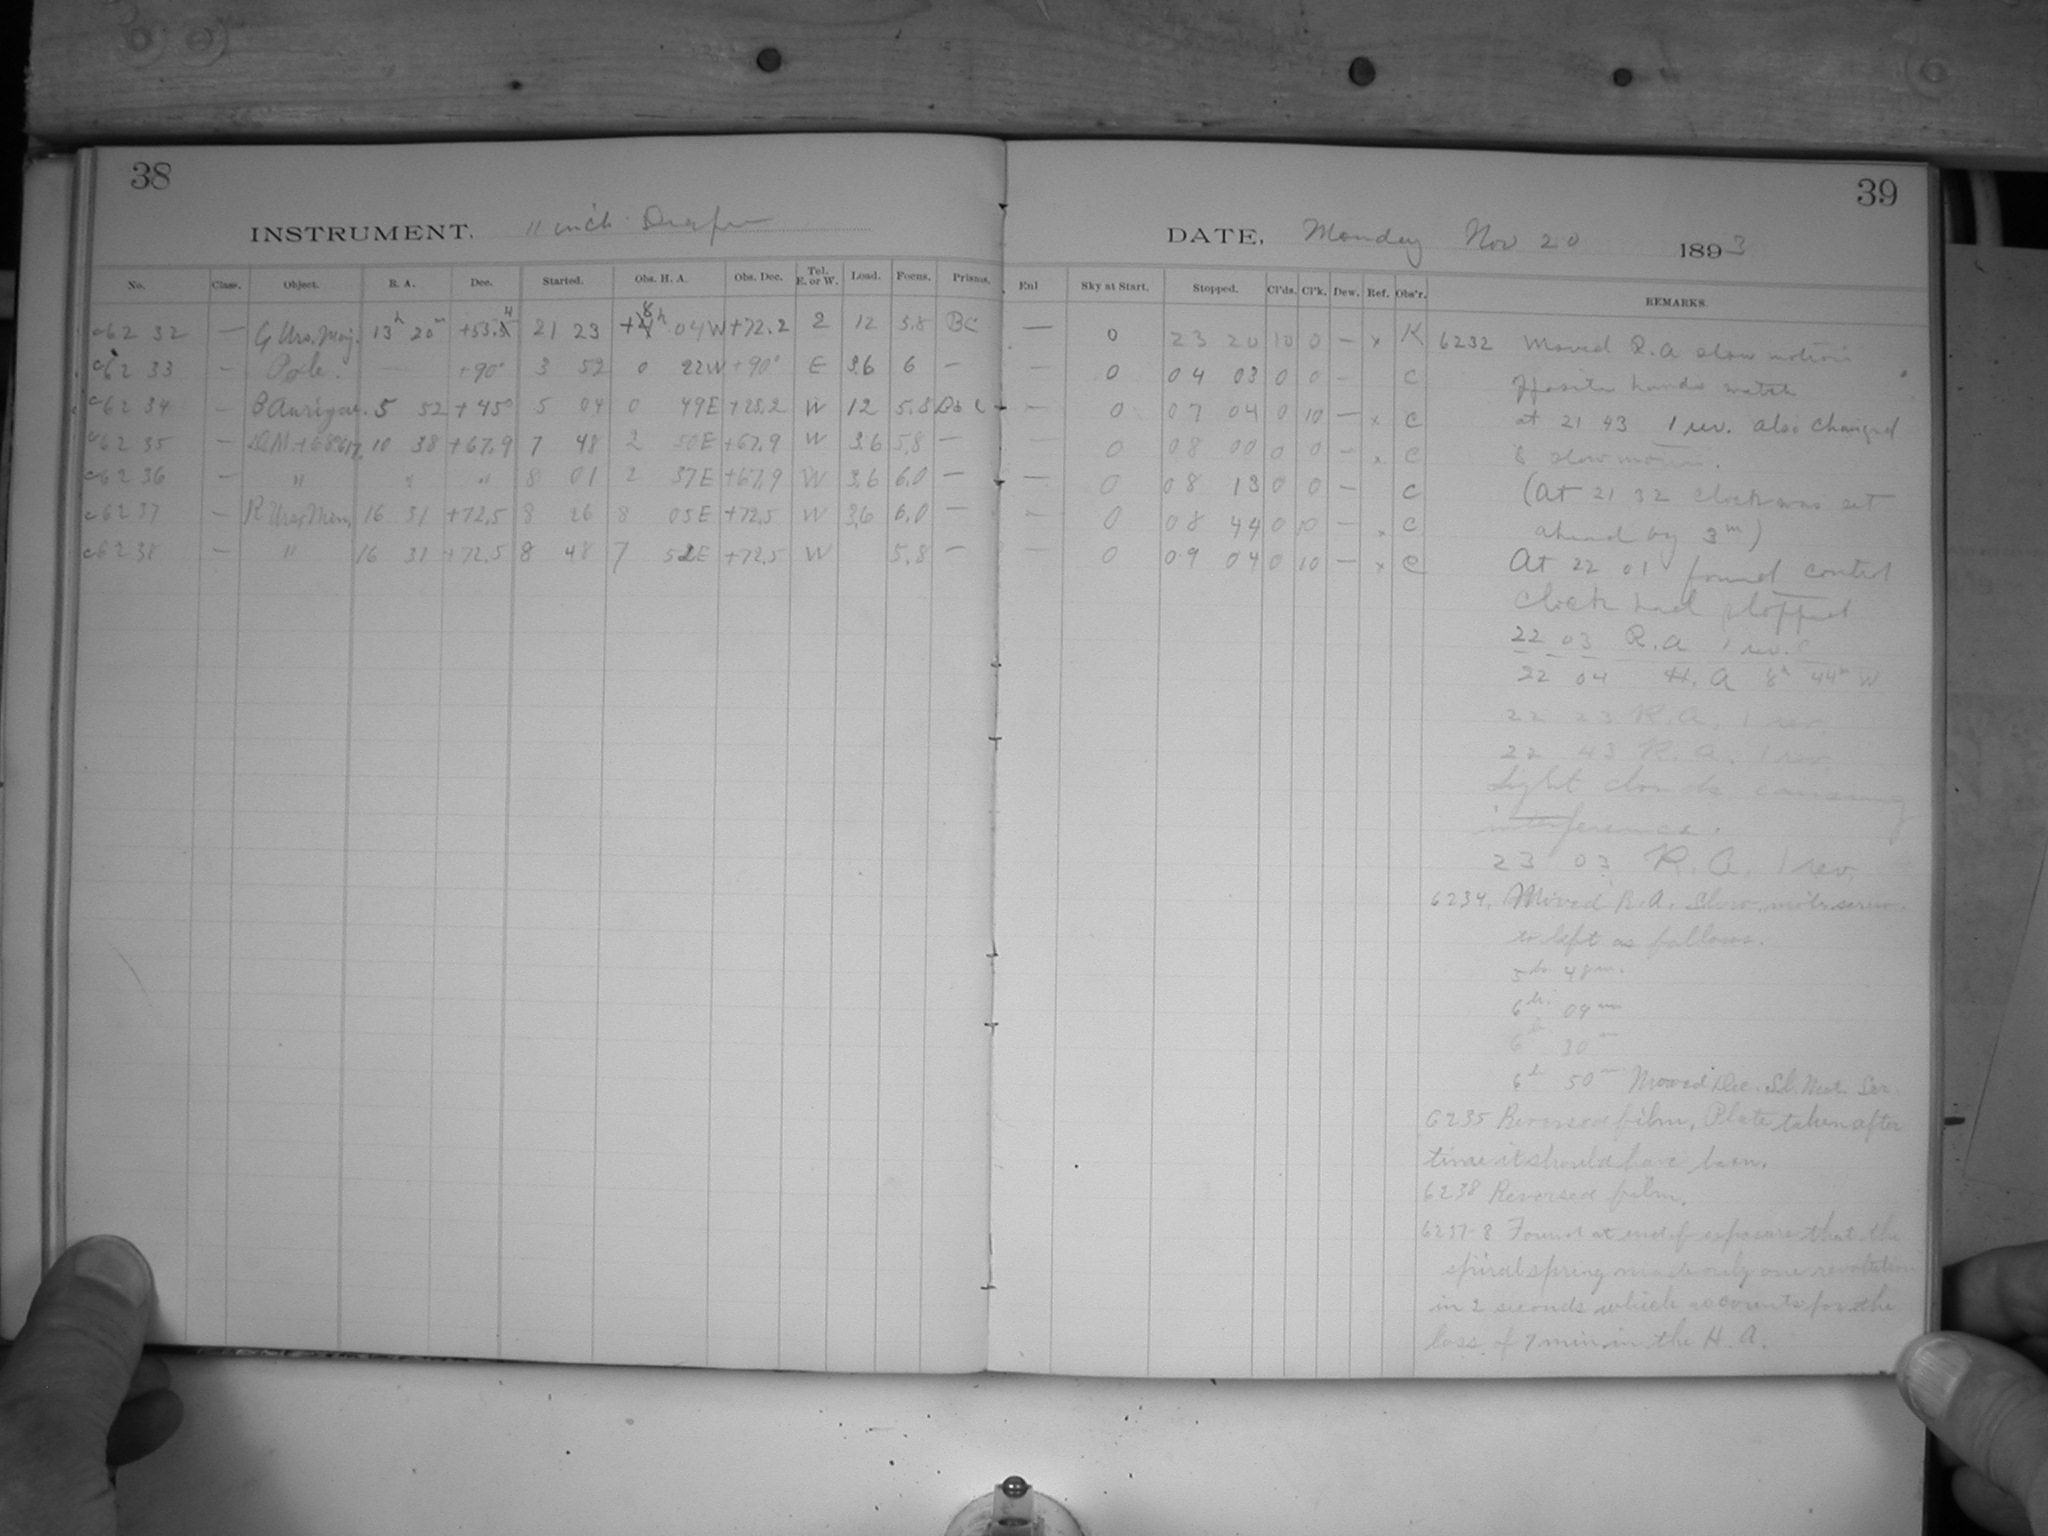 38
39
INSTRUMENT. 11 inch Draper
DATE, Monday Nov 20 1893
No. Class. Object. R. A. Dec. Started. Obs. H. A. Obs. Dec. Tel. E. or W. Load. Focus. Prisms. Enl Sky at Start. Stopped. Cl'ds. Cl'k. Dew. Ref. Obs'r. REMARKS
c6232 — Urs. Maj. 13h 20m 21 23 04W +72.2 2 12 5.8 — 0 23 20 10 0 — x K
c6233 — Pole. — +90° 3 52 0 22W +90° E 3.6 6 — — 0 04 03 0 0 — C
c6234 — Aurigae. 5 52 +45° 5 04 0 49E W 12 5.8 — 0 07 04 0 10 — x C
c6235 — 10 38 +67.9 7 48 2 50E +67.9 W 3.6 5.8 — — 0 08 00 0 0 — x C
c6236 — " " " 8 01 2 37E +67.9 W 3.6 6.0 — — 0 08 13 0 0 — C
c6237 — R Urs. Min. 16 31 +72.5 8 26 8 05E +72.5 W 3.6 6.0 — — 0 08 44 0 10 — x C
c6238 — " 16 31 +72.5 8 48 7 52E +72.5 W 5.8 — — 0 09 04 0 10 — x C
6232 Moved R.A slow motion
opposite hands watch
at 21 43 1 rev. also changed
slow motion.
(At 21 32 clock was set
ahead by 3m)
At 22 01 found control
clock had stopped
22 03 R.A 1 rev.
22 04 H.A 8h 44m W
22 23 R.A. 1 rev.
22 43 R.A. 1 rev.
Light clouds causing
interference.
23 03 R.A. 1 rev.
6234. Moved R.A. Slow. mot. screw
to left as follows.
5h. 49m.
6h. 09m
6h 30m
6h 50m Moved Dec. Sl. Mot. Scr.
6235 Reversed film. Plate taken after
time it should have been.
6238 Reversed film.
6237-8 Found at end of exposure that the
spiral spring made only one revolution
in 2 seconds which accounts for the
loss of 7 min. in the H. A.